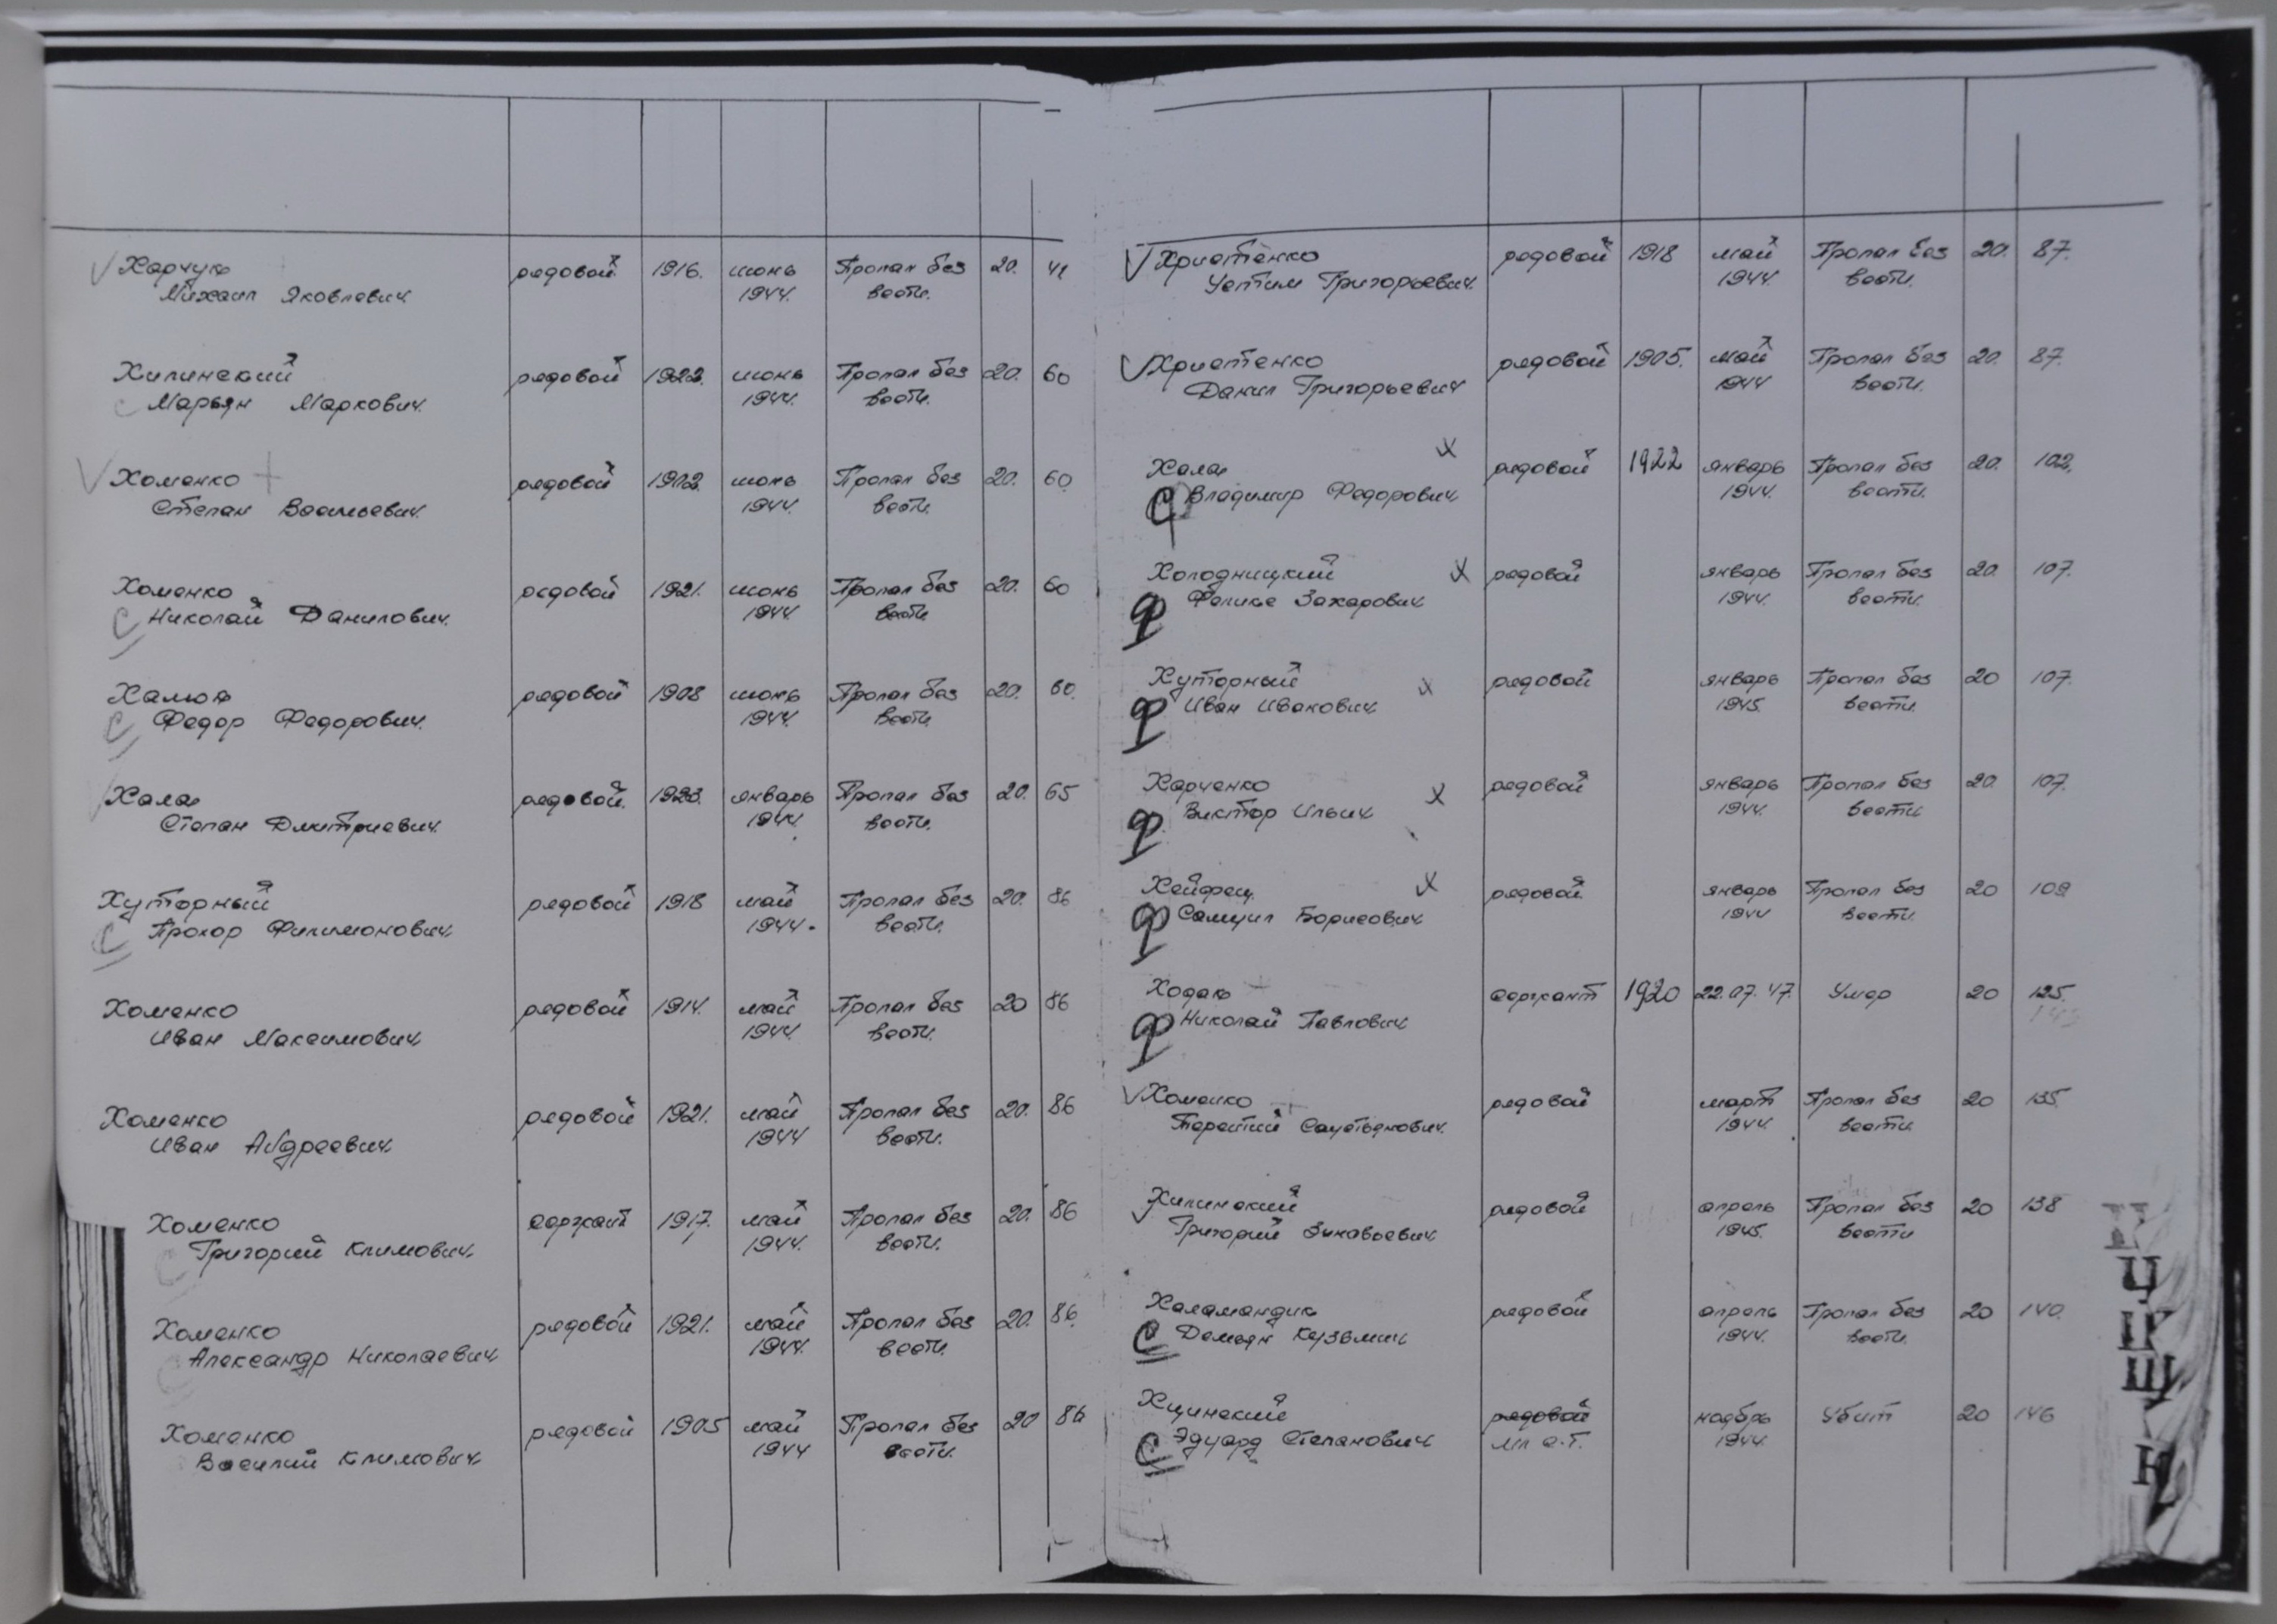 Харчук рядовой 1916. июнь Пропал без 20. 41
Михаил Яковлевич 1944. вести.
Хилинский рядовой 1922. июнь Пропал без 20. 60
Марьян Маркович. 1944. вести.
Хоменко рядовой 1902. июнь Пропал без 20. 60
Степан Васильевич. 1944. вести.
Хоменко рядовой 1921. июнь Пропал без 20. 60
С Николай Данилович. 1944. вести
Халюк рядовой 1908 июнь Пропал без 20. 60.
С Федор Федорович. 1944. вести.
Хала рядовой. 1923. январь Пропал без 20. 65
Степан Дмитриевич. 1944. вести.
Хуторный рядовой 1918 май Пропал без 20. 86
С Прохор Филимонович. 1944. вести.
Хоменко рядовой 1914. май Пропал без 20 86
Иван Максимович. 1944. вести.
Хоменко рядовой 1921. май Пропал без 20. 86
Иван Андреевич. 1944 вести.
Хоменко сержант 1917. май Пропал без 20. 86
С Григорий Климович. 1944. вести.
Хоменко рядовой 1921. май Пропал без 20. 86.
С Александр Николаевич 1944. вести.
Хоменко рядовой 1905 май Пропал без 20 86
Василий Климович. 1944 вести.
Христенко рядовой 1918 май Пропал без 20. 87.
Устим Григорьевич. 1944. вести.
Христенко рядовой 1905. май Пропал без 20. 87.
Данил Григорьевич 1944 вести.
Хала х рядовой 1922 январь Пропал без 20. 102.
С Владимир Федорович 1944. вести.
Холодницкий х рядовой январь Пропал без 20. 107.
Ф Феликс Захарович 1944. вести.
Хуторный х рядовой январь Пропал без 20 107.
Ф Иван Иванович 1945. вести.
Харченко х рядовой январь Пропал без 20. 107.
Ф Виктор Ильич 1944. вести
Хейфец х рядовой январь Пропал без 20 109
Ф Самуил Борисович 1944 вести.
Ходак сержант 1920 22.07.47. Умер 20 125.
Ф Николай Павлович
Хоменко рядовой март Пропал без 20 135.
Терентий 1944. вести.
Хилинский рядовой апрель Пропал без 20 138
Григорий Зиновьевич 1945. вести
Халамандик рядовой апрель Пропал без 20 140.
С Демьян Кузьмич 1944. вести.
Хщинский рядовой ноябрь Убит 20 146
С Эдуард Степанович мл с-т. 1944.
Ц
Щ